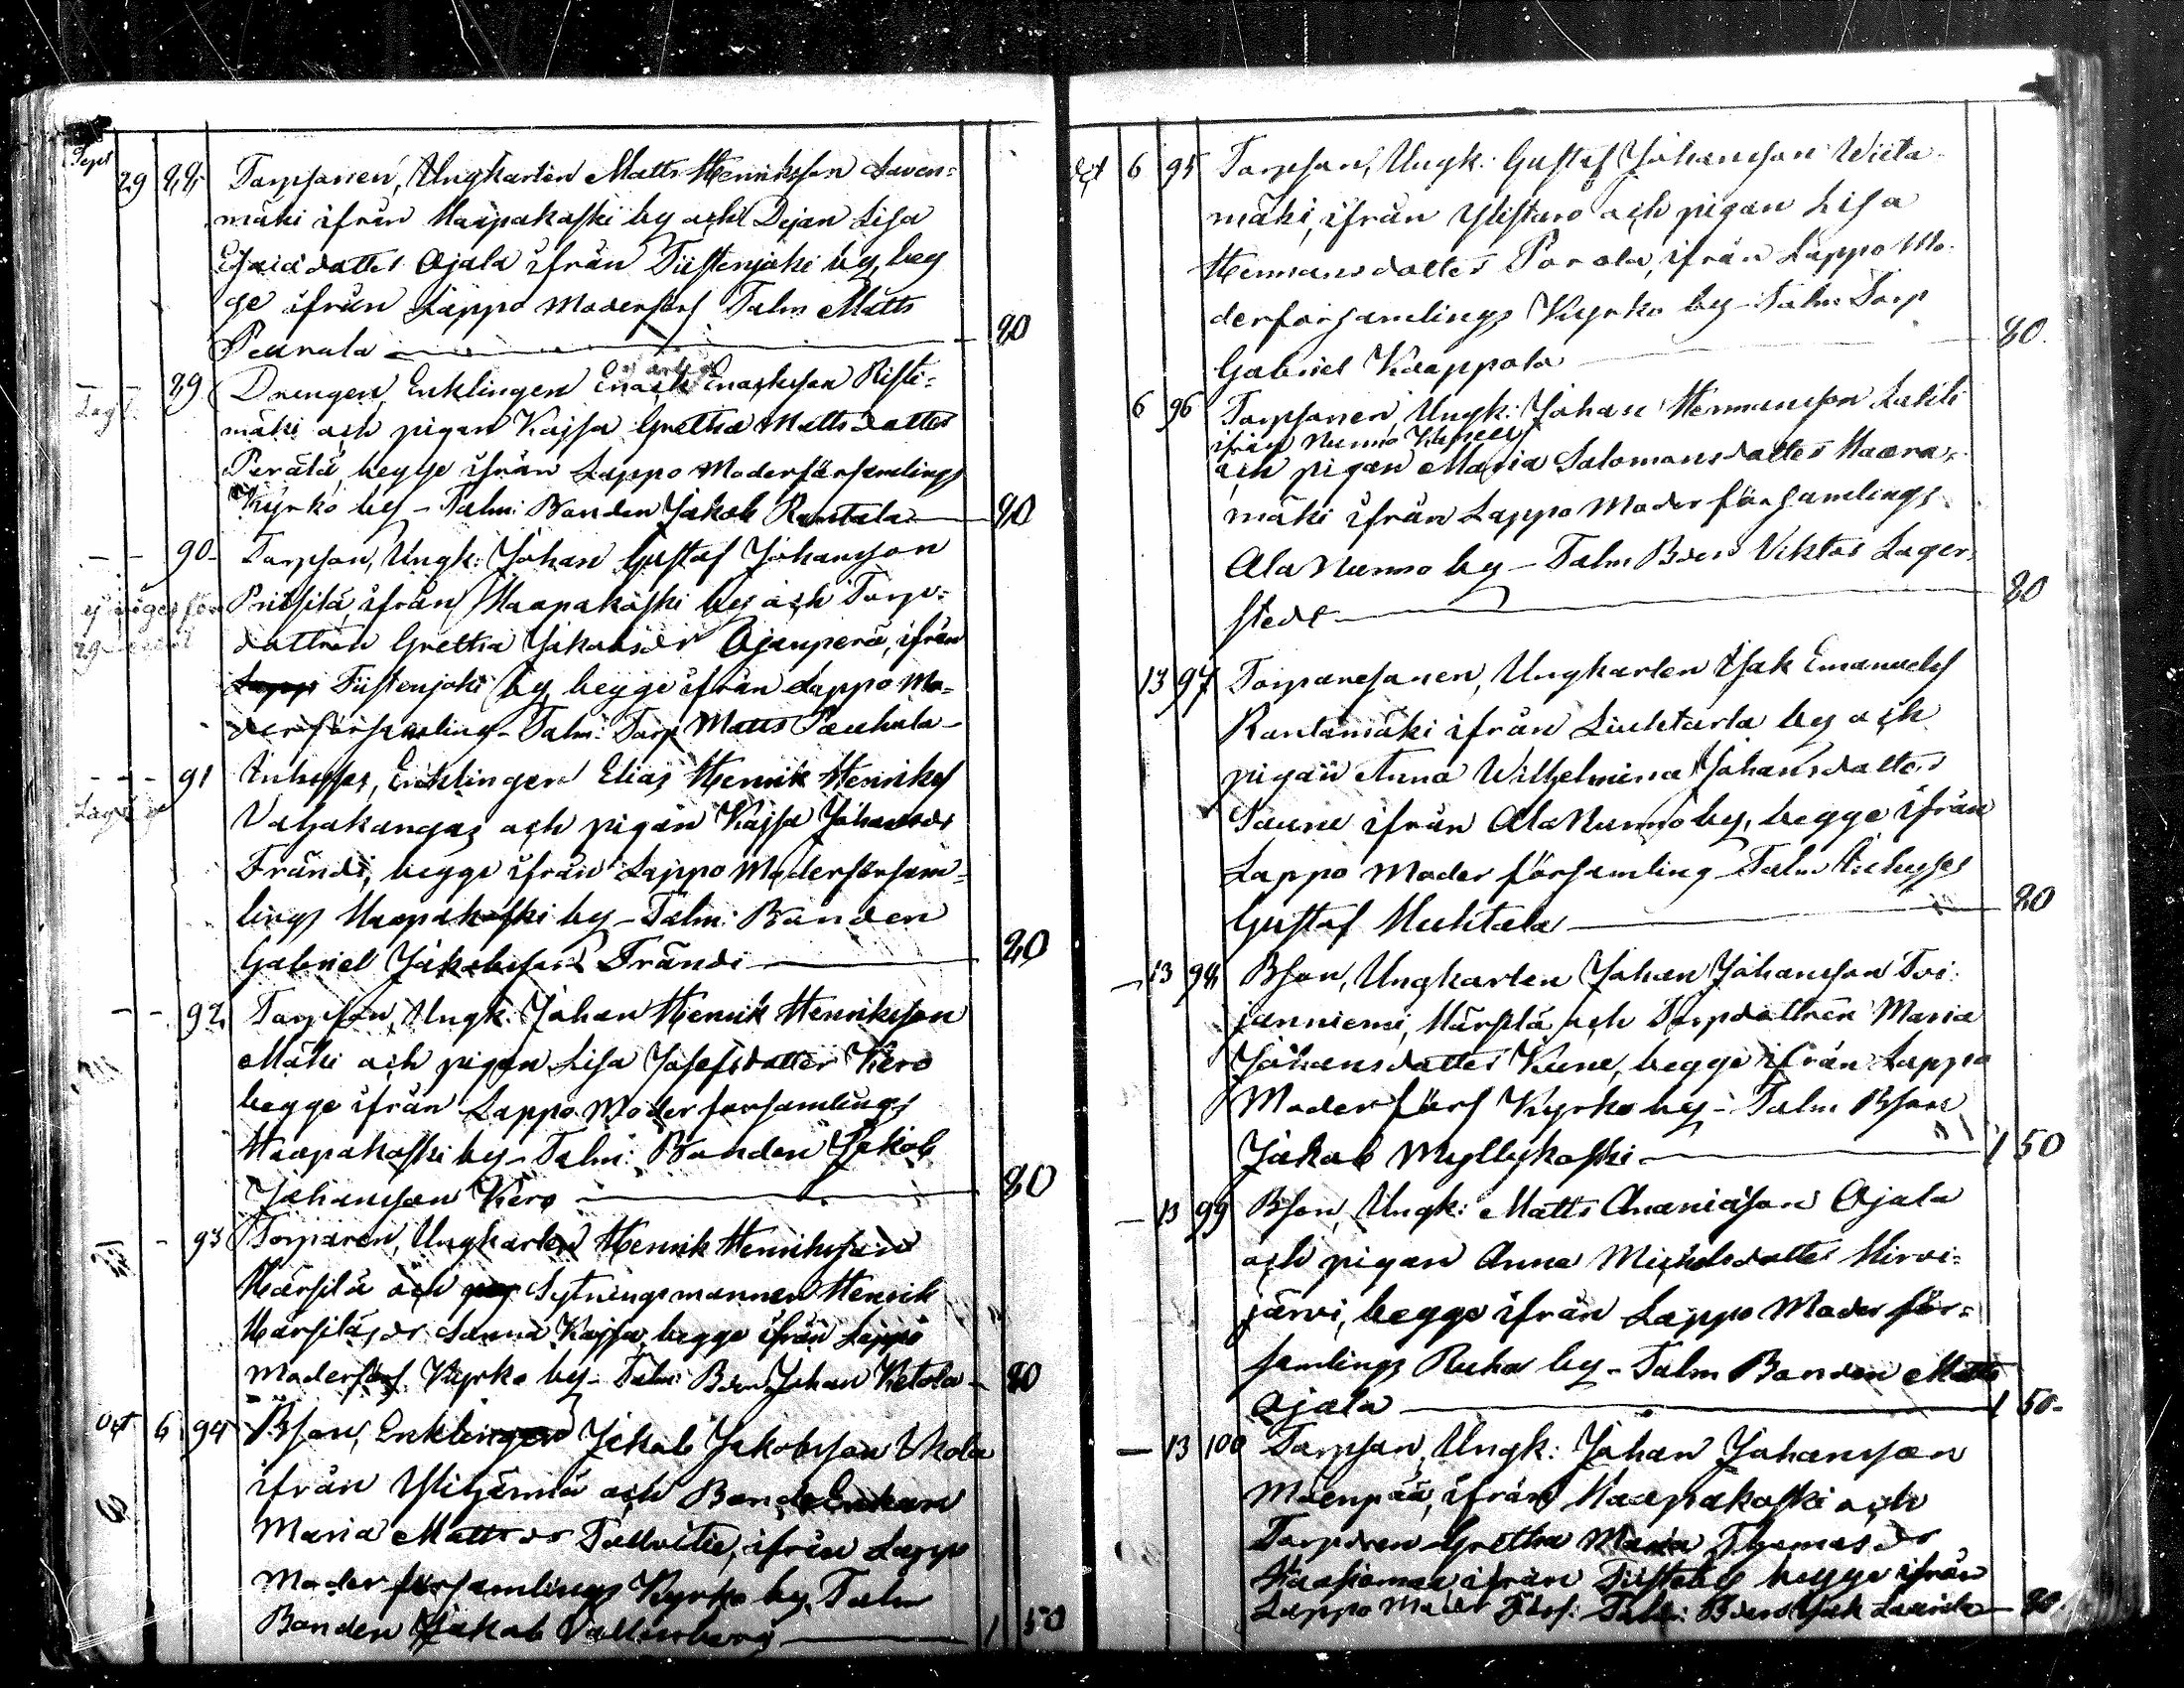 Sept 29 88 Torpsonen, Ungkarlen Matts Henriksson Saven=
mäki ifrån Haapakoski by och Pigan Lisa
Esaiädotter Ajala ifrån Tiistenjoki by, beg
ge ifrån Lappo Moderförs Talm Matts
Peurala 80
- - 89 Drengen, Enklingen Enach Enachsson Risti=
mäki och pigan Kajsa Gretha Mattsdotter
Perälä, begge ifrån Lappo Moderförsamlings
Kyrko by - Talm: Bonden Jakob Rantala 80
- - 90 Torpson, Ungk: Johan Gustaf Johansson
Pritsilä, ifrån Haapakoski by och Torp=
dottren Gretha Jakobsdr Ajanperä, ifrån
Lappo Tiistenjoki by, begge ifrån Lappo Mo=
derförsamling - Talm: Torp Matts Pouhula
- - - 91 Inhyses, Enklingen Elias Henrik Henriks
Valjakangas och pigan Kajsa Johansdr
Frändi, begge ifrån Lappo Moderförsam=
lings Haapakoski by - Talm: Bonden
Gabriel Jakobsson Frändi 80
- - 92 Torpson, Ungk. Johan Henrik Henriksson
Mäki och pigan Lisa Josefsdotter Kero
begge ifrån Lappo Moderforsamlings
Haapakoski by - Talm: Bonden Jakob
Johansson Kero 80
- 93 Torparen, Ungkarlen Henrik Henriksson
Härsilä och pig Sytningsmannen Henrik
Härsiläs dr Sanna Kajsa, begge ifrån Lappo
Moderförs Kyrko by - Talm: Bden Johan Ketola - 80
Oct 6 94 Bson, Enklingen Jakob Jakobsson Ukola
ifrån Ylihärmä och BondeEnkan
Maria Mattsdr Tallvitie, ifrån Lappo
Moderförsamlings Kyrko by, Talm
Bonden Jakob 1 50
Oct 6 95 Torpson, Ungk: Gustaf Johansson Wiita
mäki, ifrån Ylistaro och pigan Lisa
Hermansdotter Porola, ifrån Lappo Mo
derforsamlings Kyrko by - Talm Torp
Gabriel Kaappola 80
6 96 Torpsonen, Ungk: Johan Hermansson Lahti
ifrån Nurmo
och pigan Maria Salomonsdotter Haara=
mäki ifrån Lappo Moderförsamlings
Ala Nurmo by - Talm Bden Viktor Lager
stedt 80
13 97 Torparesonen, Ungkarlen Isak Emanuels
Rantamäki ifrån Liuhtarla by och
pigan Anna Wilhelmina Johansdotter
Saune ifrån Ala Nurmo by, begge ifrån
Lappo Moder församling Talm Inhyses
Gustaf Huhtala 80
- 13 98 Bson, Ungkarlen Johan Johansson Toi
janniemi, Härsilä och Torpdottren Maria
Johansdotter Kune, begge ifrån Lappo
Moderförs Kyrko by - Talm Bson
Jakob Myllykoski 1 50
- 13 99 Bson, Ungk: Matts Ananiäson Ajala
och pigan Anna Michelsdotter Hirvi=
järvi, begge ifrån Lappo Moder för=
samlings Ruha by - Talm Bonden Matts
Ajala 1 50
- 13 100 Torpson, Ungk: Johan Johansson
Mäenpää, ifrån Haapakoski och
Torpdren Gretha Maria Thomasdr
ifrån begge ifrån
Lappo Moder Förs: Talm: Bden Isak 80